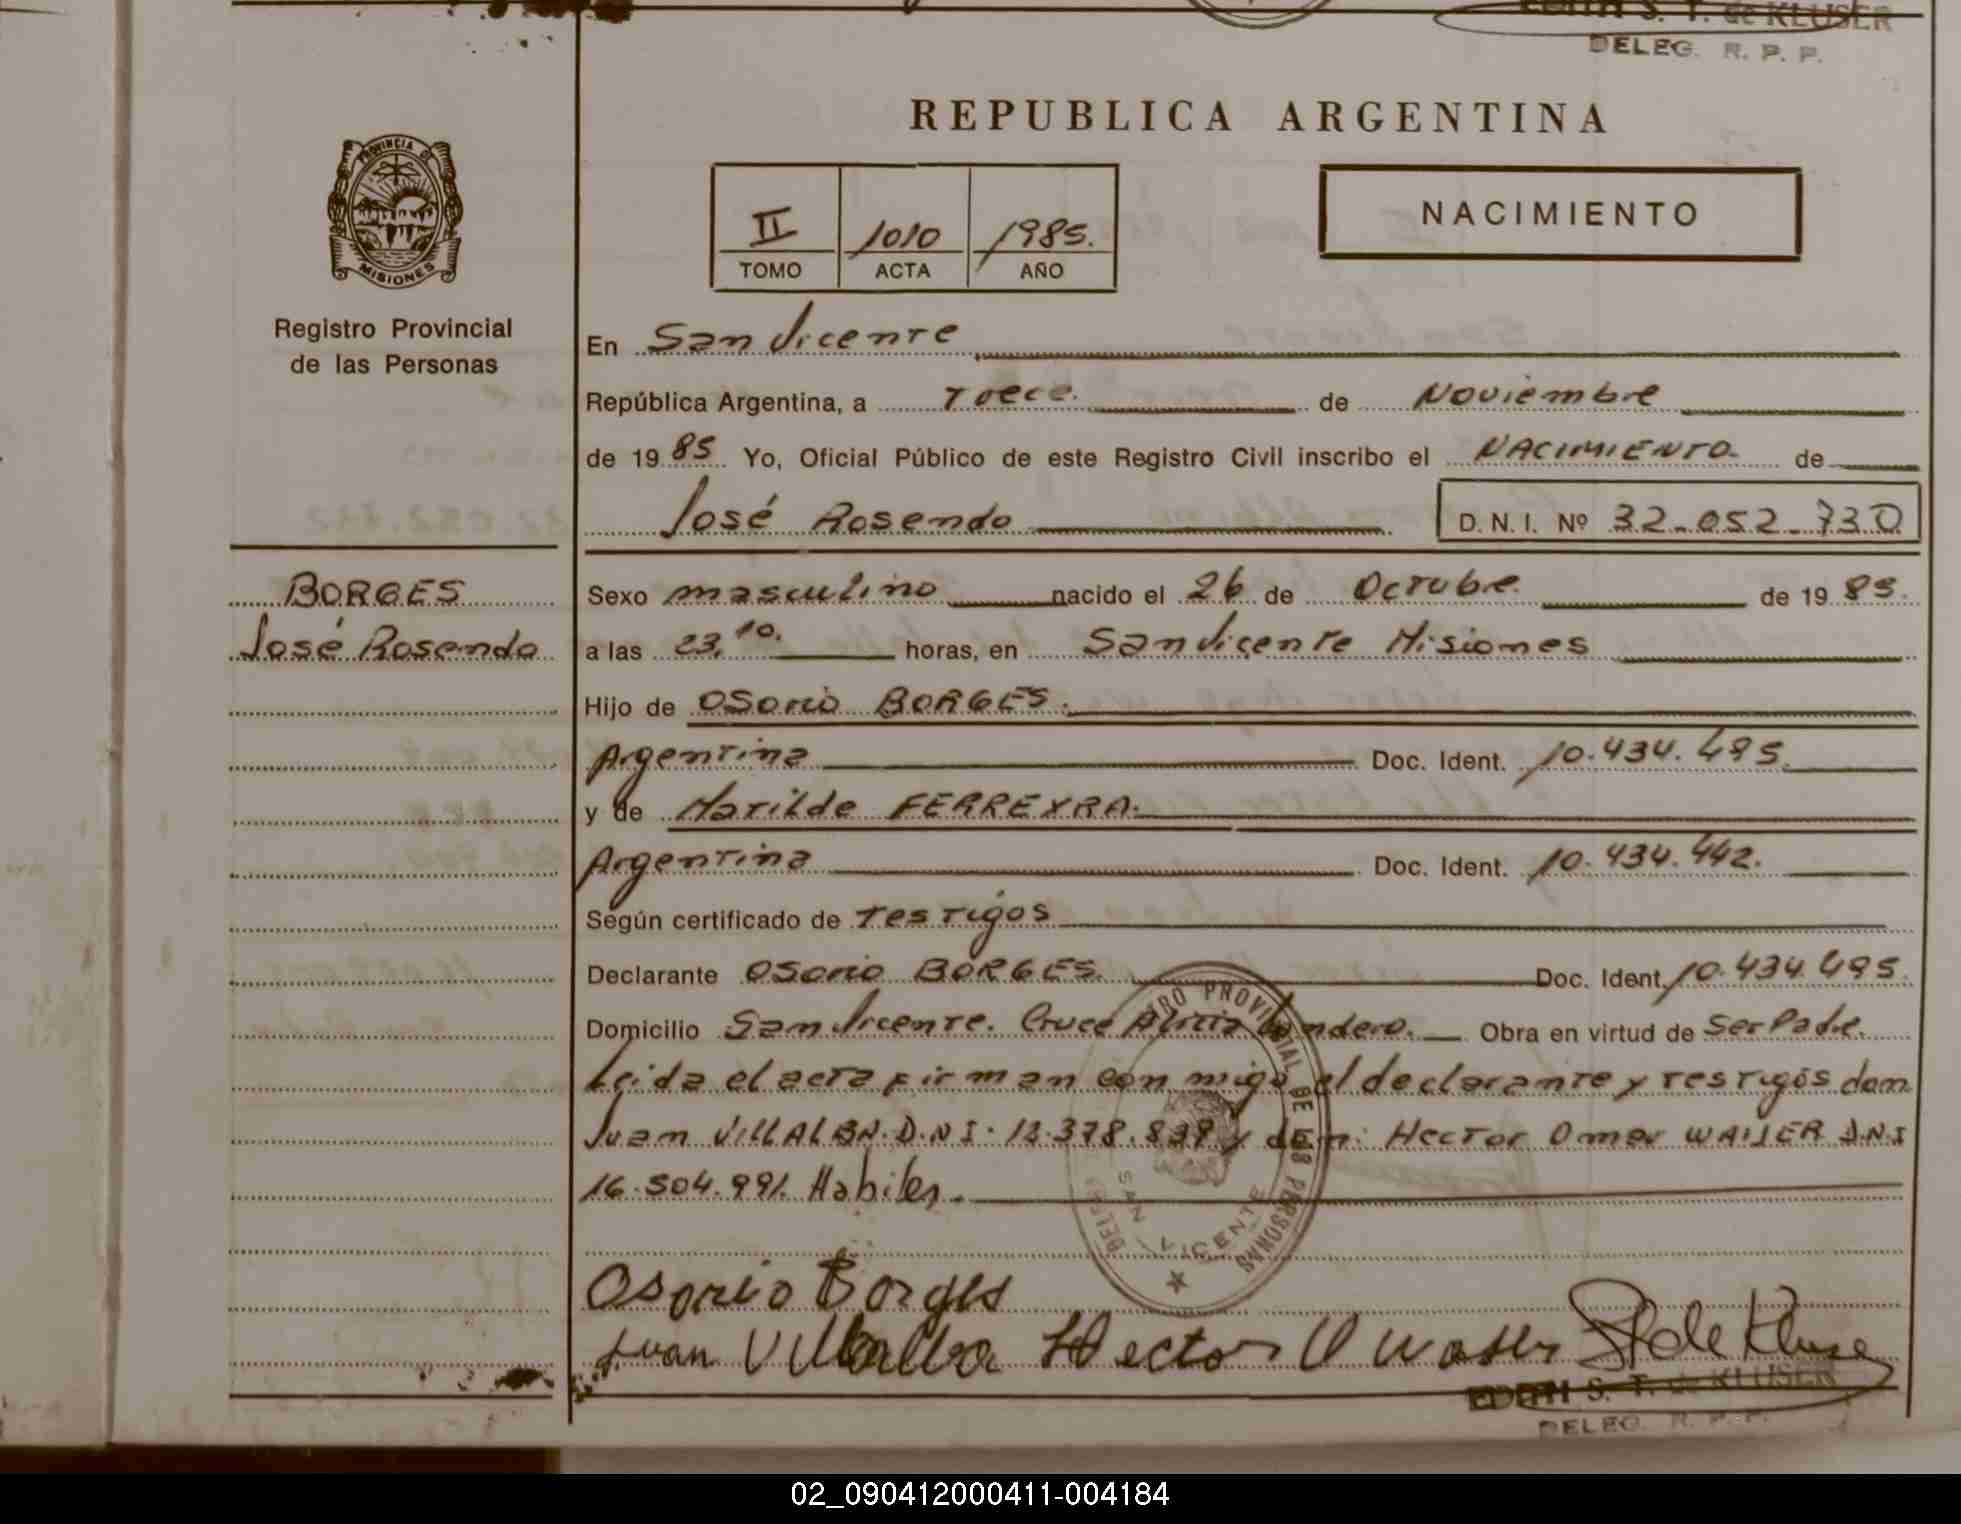 EDITH S. T. de KLUSER
DELEG. R. P. P.
REPUBLICA ARGENTINA
PROVINCIA DE
MISIONES
Registro Provincial
de las Personas
II 1010 1985.
TOMO ACTA AÑO
NACIMIENTO
En San Vicente
República Argentina, a Trece. de Noviembre
de 1985 Yo, Oficial Público de este Registro Civil inscribo el NACIMIENTO. de
José Rosendo D. N. I. Nº 32.052.730
BORGES
José Rosendo
Sexo masculino nacido el 26 de Octubre. de 1985.
a las 23,10. horas, en San Vicente Misiones
Hijo de Osorio BORGES.
Argentina Doc. Ident. 10.434.495.
y de Matilde FERREYRA.
Argentina Doc. Ident. 10.434.442.
Según certificado de Testigos
Declarante Osorio BORGES. Doc. Ident. 10.434.495.
Domicilio San Vicente. Cruce Alicia Landero. Obra en virtud de Ser Padre.
Leida el acta firman con migo el declarante y testigos dom
Juan VILLALBA. D.N.I. 12.378.839 y dom: Hector Omar WALLER D.N.I
16.504.991. Habiles.
REGISTRO PROVINCIAL DE LAS PERSONAS
SAN VICENTE
Osorio Borges
Juan Villalba Hector O Waller St de Kluser
EDITH S. T. de KLUSER
DELEG. R. P. P.
02_090412000411-004184